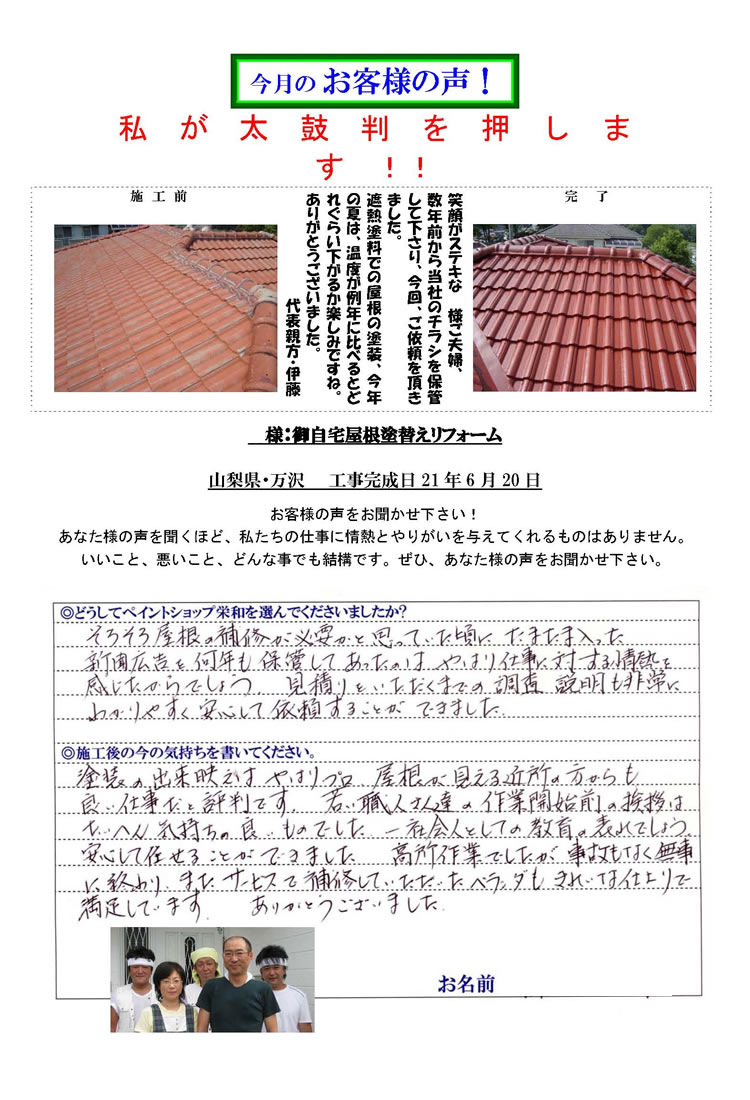 今月の お客様の声！
私が太鼓判を押しま
す!!
施工前
笑顔がステキな　様ご夫婦、
数年前から当社のチラシを保管
して下さり、今回、ご依頼を頂き
ました。
遮熱塗料での屋根の塗装、今年
の夏は、温度が例年に比べるとど
れぐらい下がるか楽しみですね。
ありがとうございました。
代表親方・伊藤
完了
様：御自宅屋根塗替えリフォーム
山梨県・万沢　工事完成日21年6月20日
お客様の声をお聞かせ下さい！
あなた様の声を聞くほど、私たちの仕事に情熱とやりがいを与えてくれるものはありません。
いいこと、悪いこと、どんな事でも結構です。ぜひ、あなた様の声をお聞かせ下さい。
◎どうしてペイントショップ栄和を選んでくださいましたか?
そろそろ屋根の補修が必要かと思っていた頃に たまたま入った
新聞広告を何年も保管してあったのは やはり仕事に対する情熱を
感じたからでしょう 見積りをいただくまでの調査 説明も非常に
わかりやすく安心して依頼することができました
◎施工後の今の気持ちを書いてください。
塗装の出来映えは やはりプロ 屋根が見える近所の方からも
良い仕事だと評判です 若い職人さん達の作業開始前の挨拶は
たいへん気持ちの良いものでした 一社会人としての教育の表れでしょう
安心して任せることができました 高所作業でしたが事故もなく無事
に終わり またサービスで補修していただいたベランダもきれいな仕上りで
満足しています ありがとうございました
お名前